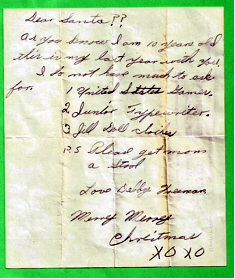 Dear Santa??
As you know I am 10 years old
this is my last year with you,
I do not have much to ask
for.
1 United States Games.
2 Junior Typewriter.
3 Jill Doll
P.S Please get mom
a Stool
Love Debby Freeman
Merry Merry
Christmas
XO XO